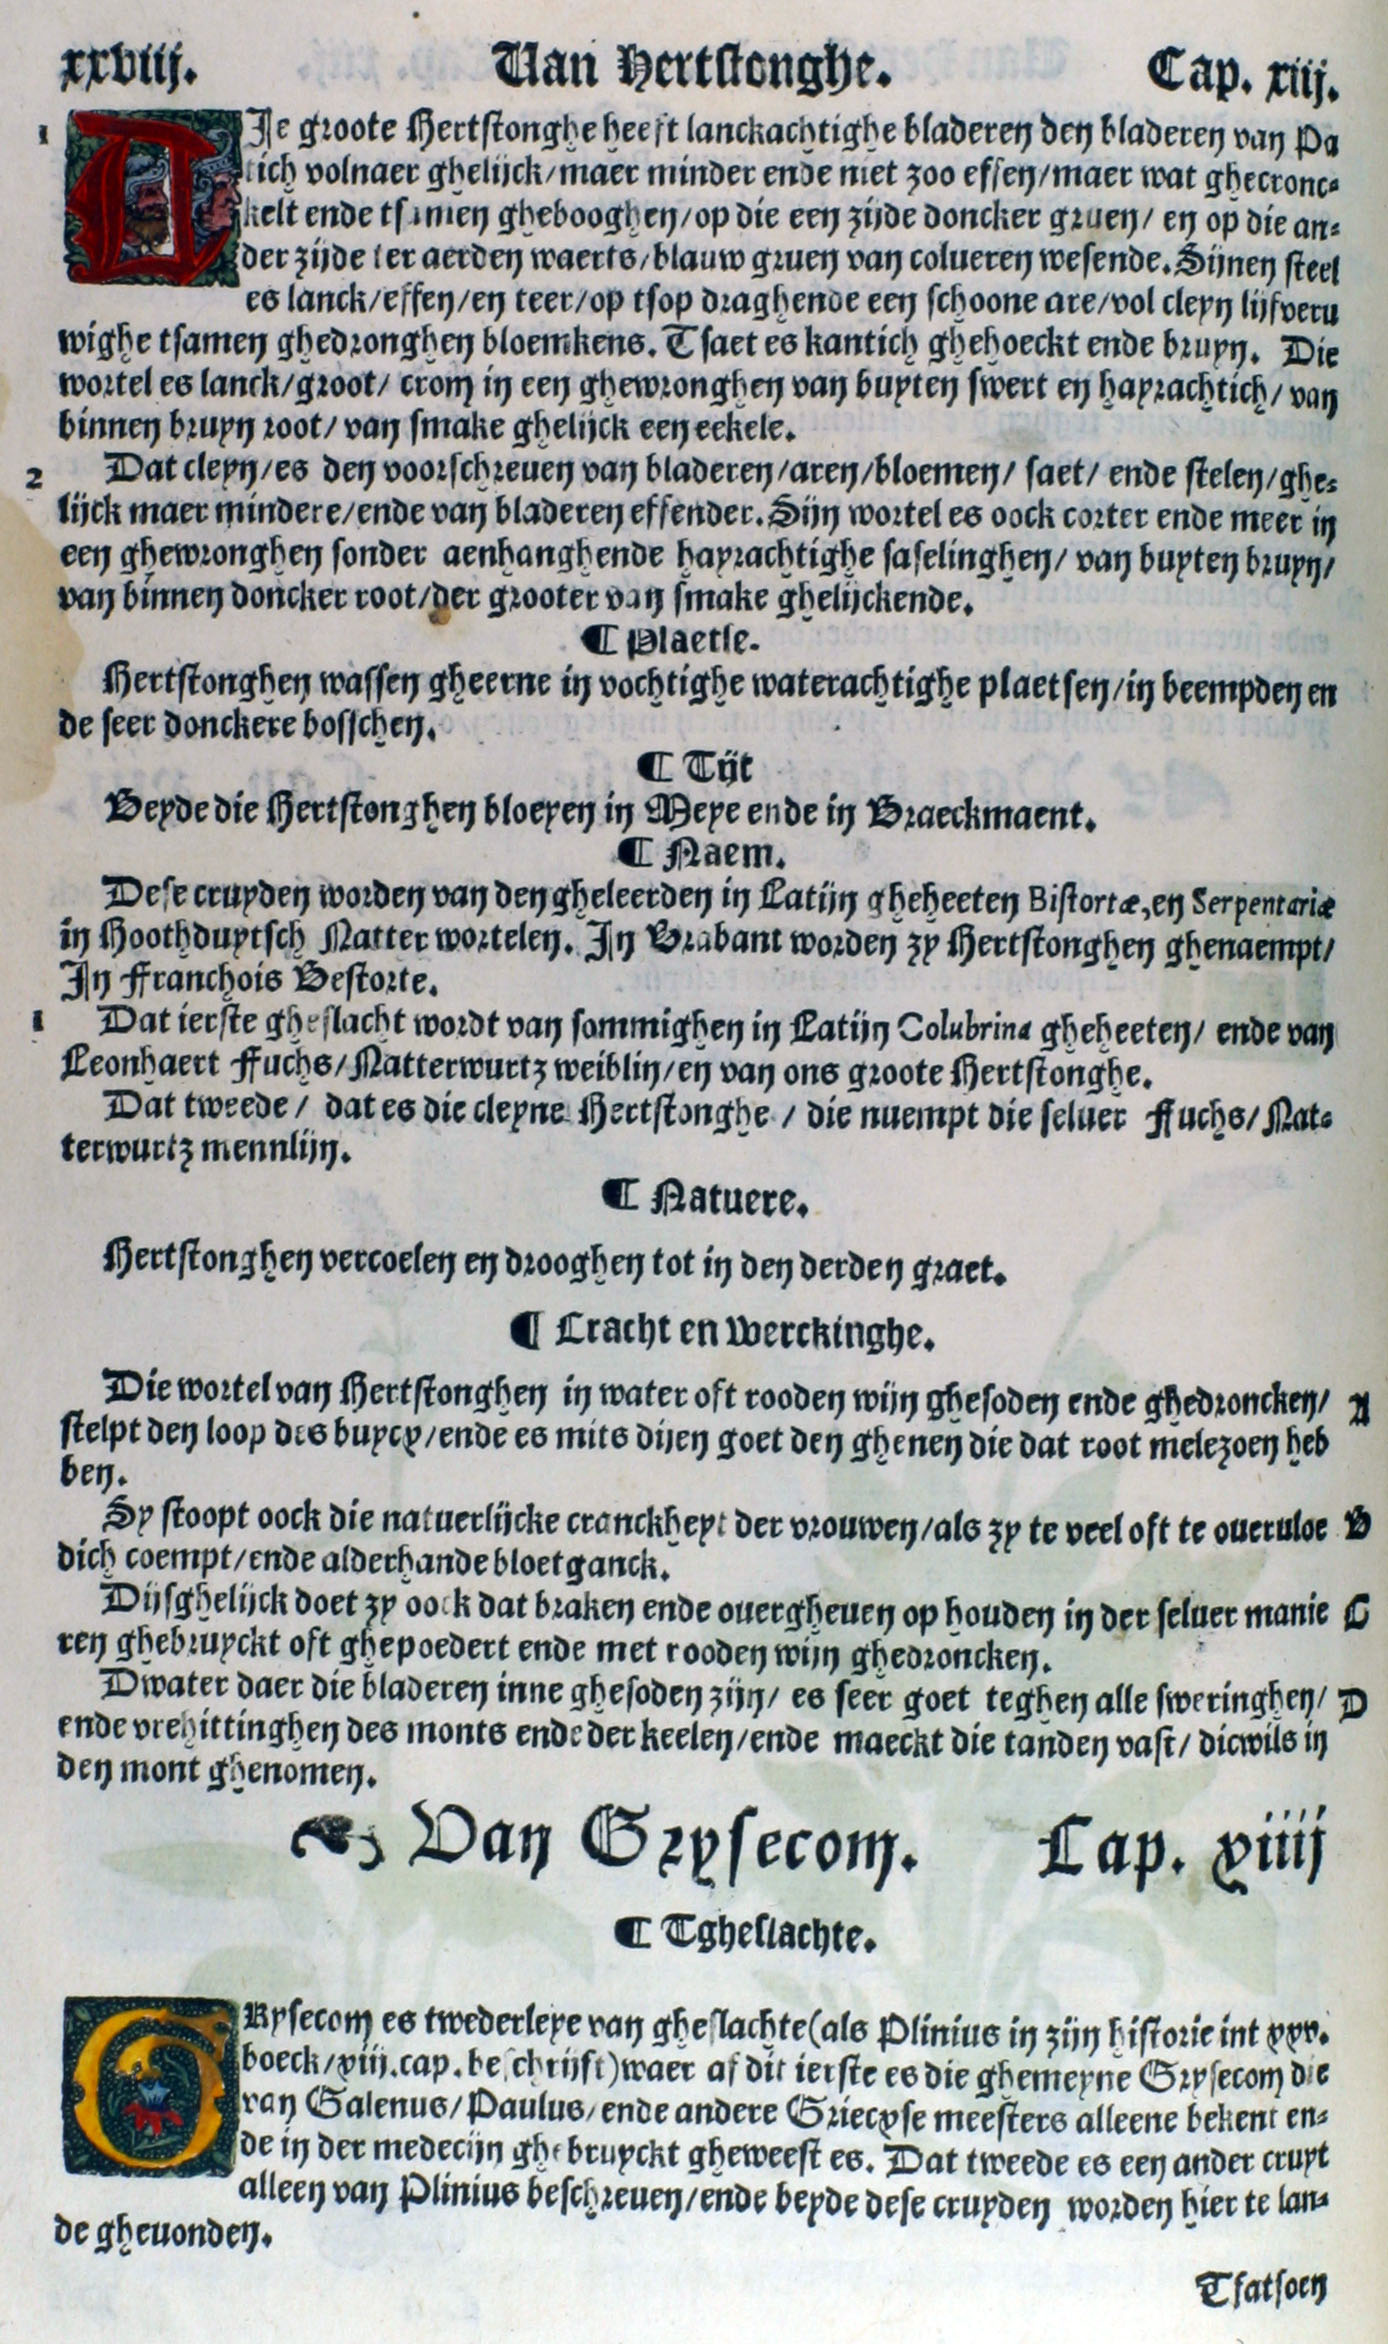 xxviij. Van Hertstonghe. Cap. xiij.
1 DJe groote Hertstonghe heeft lanckachtighe bladeren den bladeren van Pa
tich volnaer ghelijck/maer minder ende niet zoo effen/maer wat ghecronc-
kelt ende tsamen ghebooghen/op die een zijde doncker gruen/ en op die an-
der zijde ter aerden waerts/blauw gruen van colueren wesende. Sijnen steel
es lanck/effen/en teer/op tsop draghende een schoone are/vol cleyn lijfveru
wighe tsamen ghedronghen bloemkens. Tsaet es kantich ghehoeckt ende bruyn. Die
wortel es lanck/groot/ crom in een ghewronghen van buyten swert en hayrachtich/ van
binnen bruyn root/ van smake ghelijck een eekele.
2 Dat cleyn/es den voorschreuen van bladeren/aren/bloemen/ saet/ ende stelen/ghe-
lijck maer mindere/ende van bladeren effender. Sijn wortel es oock corter ende meer in
een ghewronghen sonder aenhanghende hayrachtighe faselinghen/ van buyten bruyn/
van binnen doncker root/der grooter van smake ghelijckende.
¶ Plaetse.
Hertstonghen wassen gheerne in vochtighe waterachtighe plaetsen/in beempden en
de seer donckere bosschen.
¶ Tijt
Beyde die Hertstonghen bloeyen in Meye ende in Braeckmaent.
¶ Naem.
Dese cruyden worden van den gheleerden in Latijn gheheeten Bistortæ, en Serpentariæ
in Hoothduytsch Natter wortelen. In Brabant worden zy Hertstonghen ghenaempt/
In Franchois Bestorte.
1 Dat ierste gheslacht wordt van sommighen in Latijn Colubrina gheheeten/ ende van
Leonhaert Fuchs/Natterwurtz weiblin/en van ons groote Hertstonghe.
Dat tweede/ dat es die cleyne Hertstonghe / die nuempt die seluer Fuchs/Nat-
terwurtz mennlijn.
¶ Natuere.
Hertstonghen vercoelen en drooghen tot in den derden graet.
¶ Cracht en werckinghe.
Die wortel van Hertstonghen in water oft rooden wijn ghesoden ende ghedroncken/ A
stelpt den loop des buycx/ende es mits dijen goet den ghenen die dat root melezoen heb
ben.
Sy stoopt oock die natuerlijcke cranckheyt der vrouwen/als zy te veel oft te oueruloe B
dich coempt/ende alderhande bloetganck.
Dijsghelijck doet zy oock dat braken ende ouergheuen op houden in der seluer manie C
ren ghebruyckt oft ghepoedert ende met rooden wijn ghedroncken.
Dwater daer die bladeren inne ghesoden zijn/ es seer goet teghen alle sweringhen/ D
ende vrehittinghen des monts ende der keelen/ende maeckt die tanden vast/ dicwils in
den mont ghenomen.
Van Grysecom. Cap. xiiij
¶ Tgheslachte.
GRysecom es twederleye van gheslachte(als Plinius in zijn historie int xxv.
boeck/xiij.cap.beschrijft)waer af dit ierste es die ghemeyne Grysecom die
van Galenus/Paulus/ende andere Griecxse meesters alleene bekent en-
de in der medecijn ghebruyckt gheweest es. Dat tweede es een ander cruyt
alleen van Plinius beschreuen/ende beyde dese cruyden worden hier te lan-
de gheuonden.
Tfatsoen